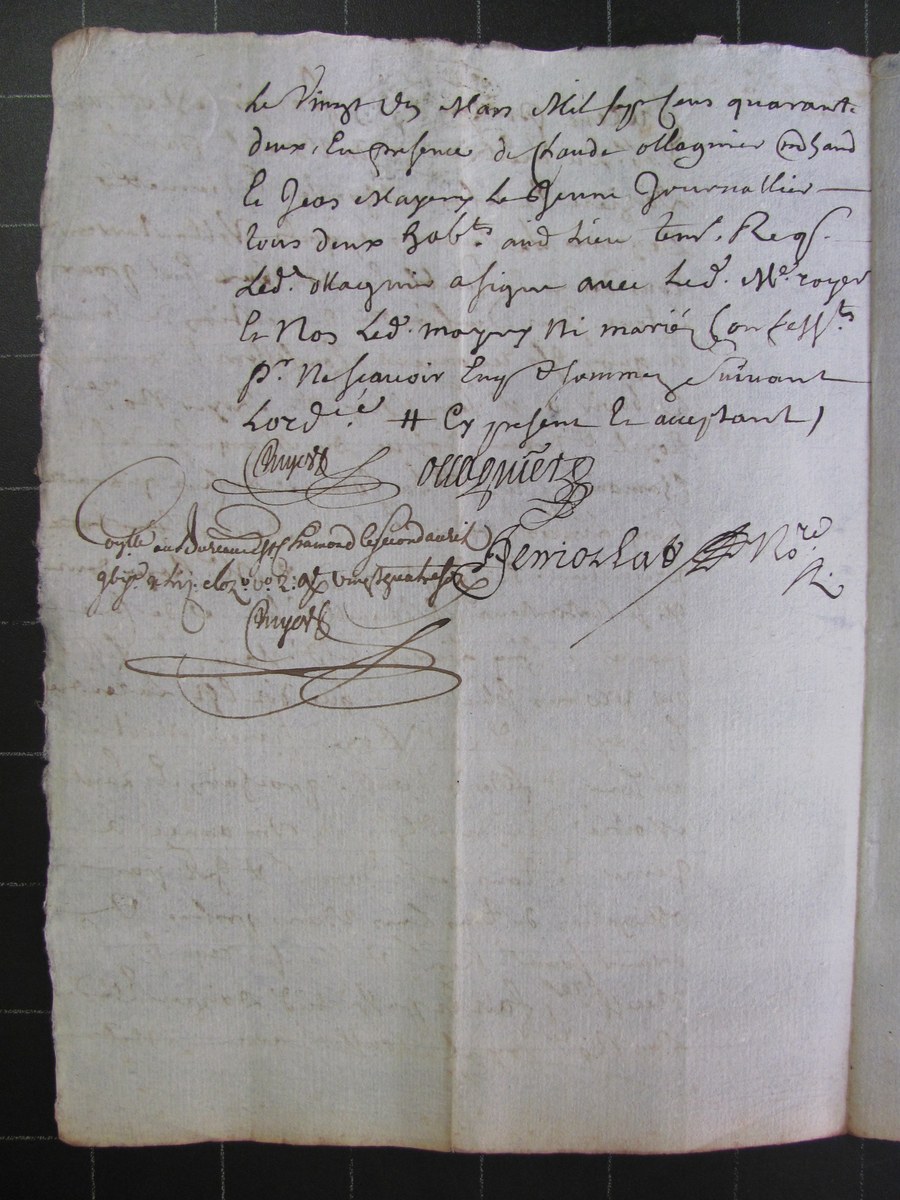 Le Vingt du Mars Mil sept Cens quarant
deux, En presence de Claude ollagnier mchand
Et Jean Mayeux Le Jeune Journallier
tous deux habts. aud Lieu tems. Reqs.
Led. ollagnier a signe avec Led. Me. royer
Et Non Led. mayeux Ni mariéz Contracts.
pr. Ne scavoir Enq. & sommez Suivant
Lordce. # Cy present Et acceptant)
Royer
ollagnier
au Bureau de St chamond le second avril
vingt quatre sols
Nore.
R.
Royer